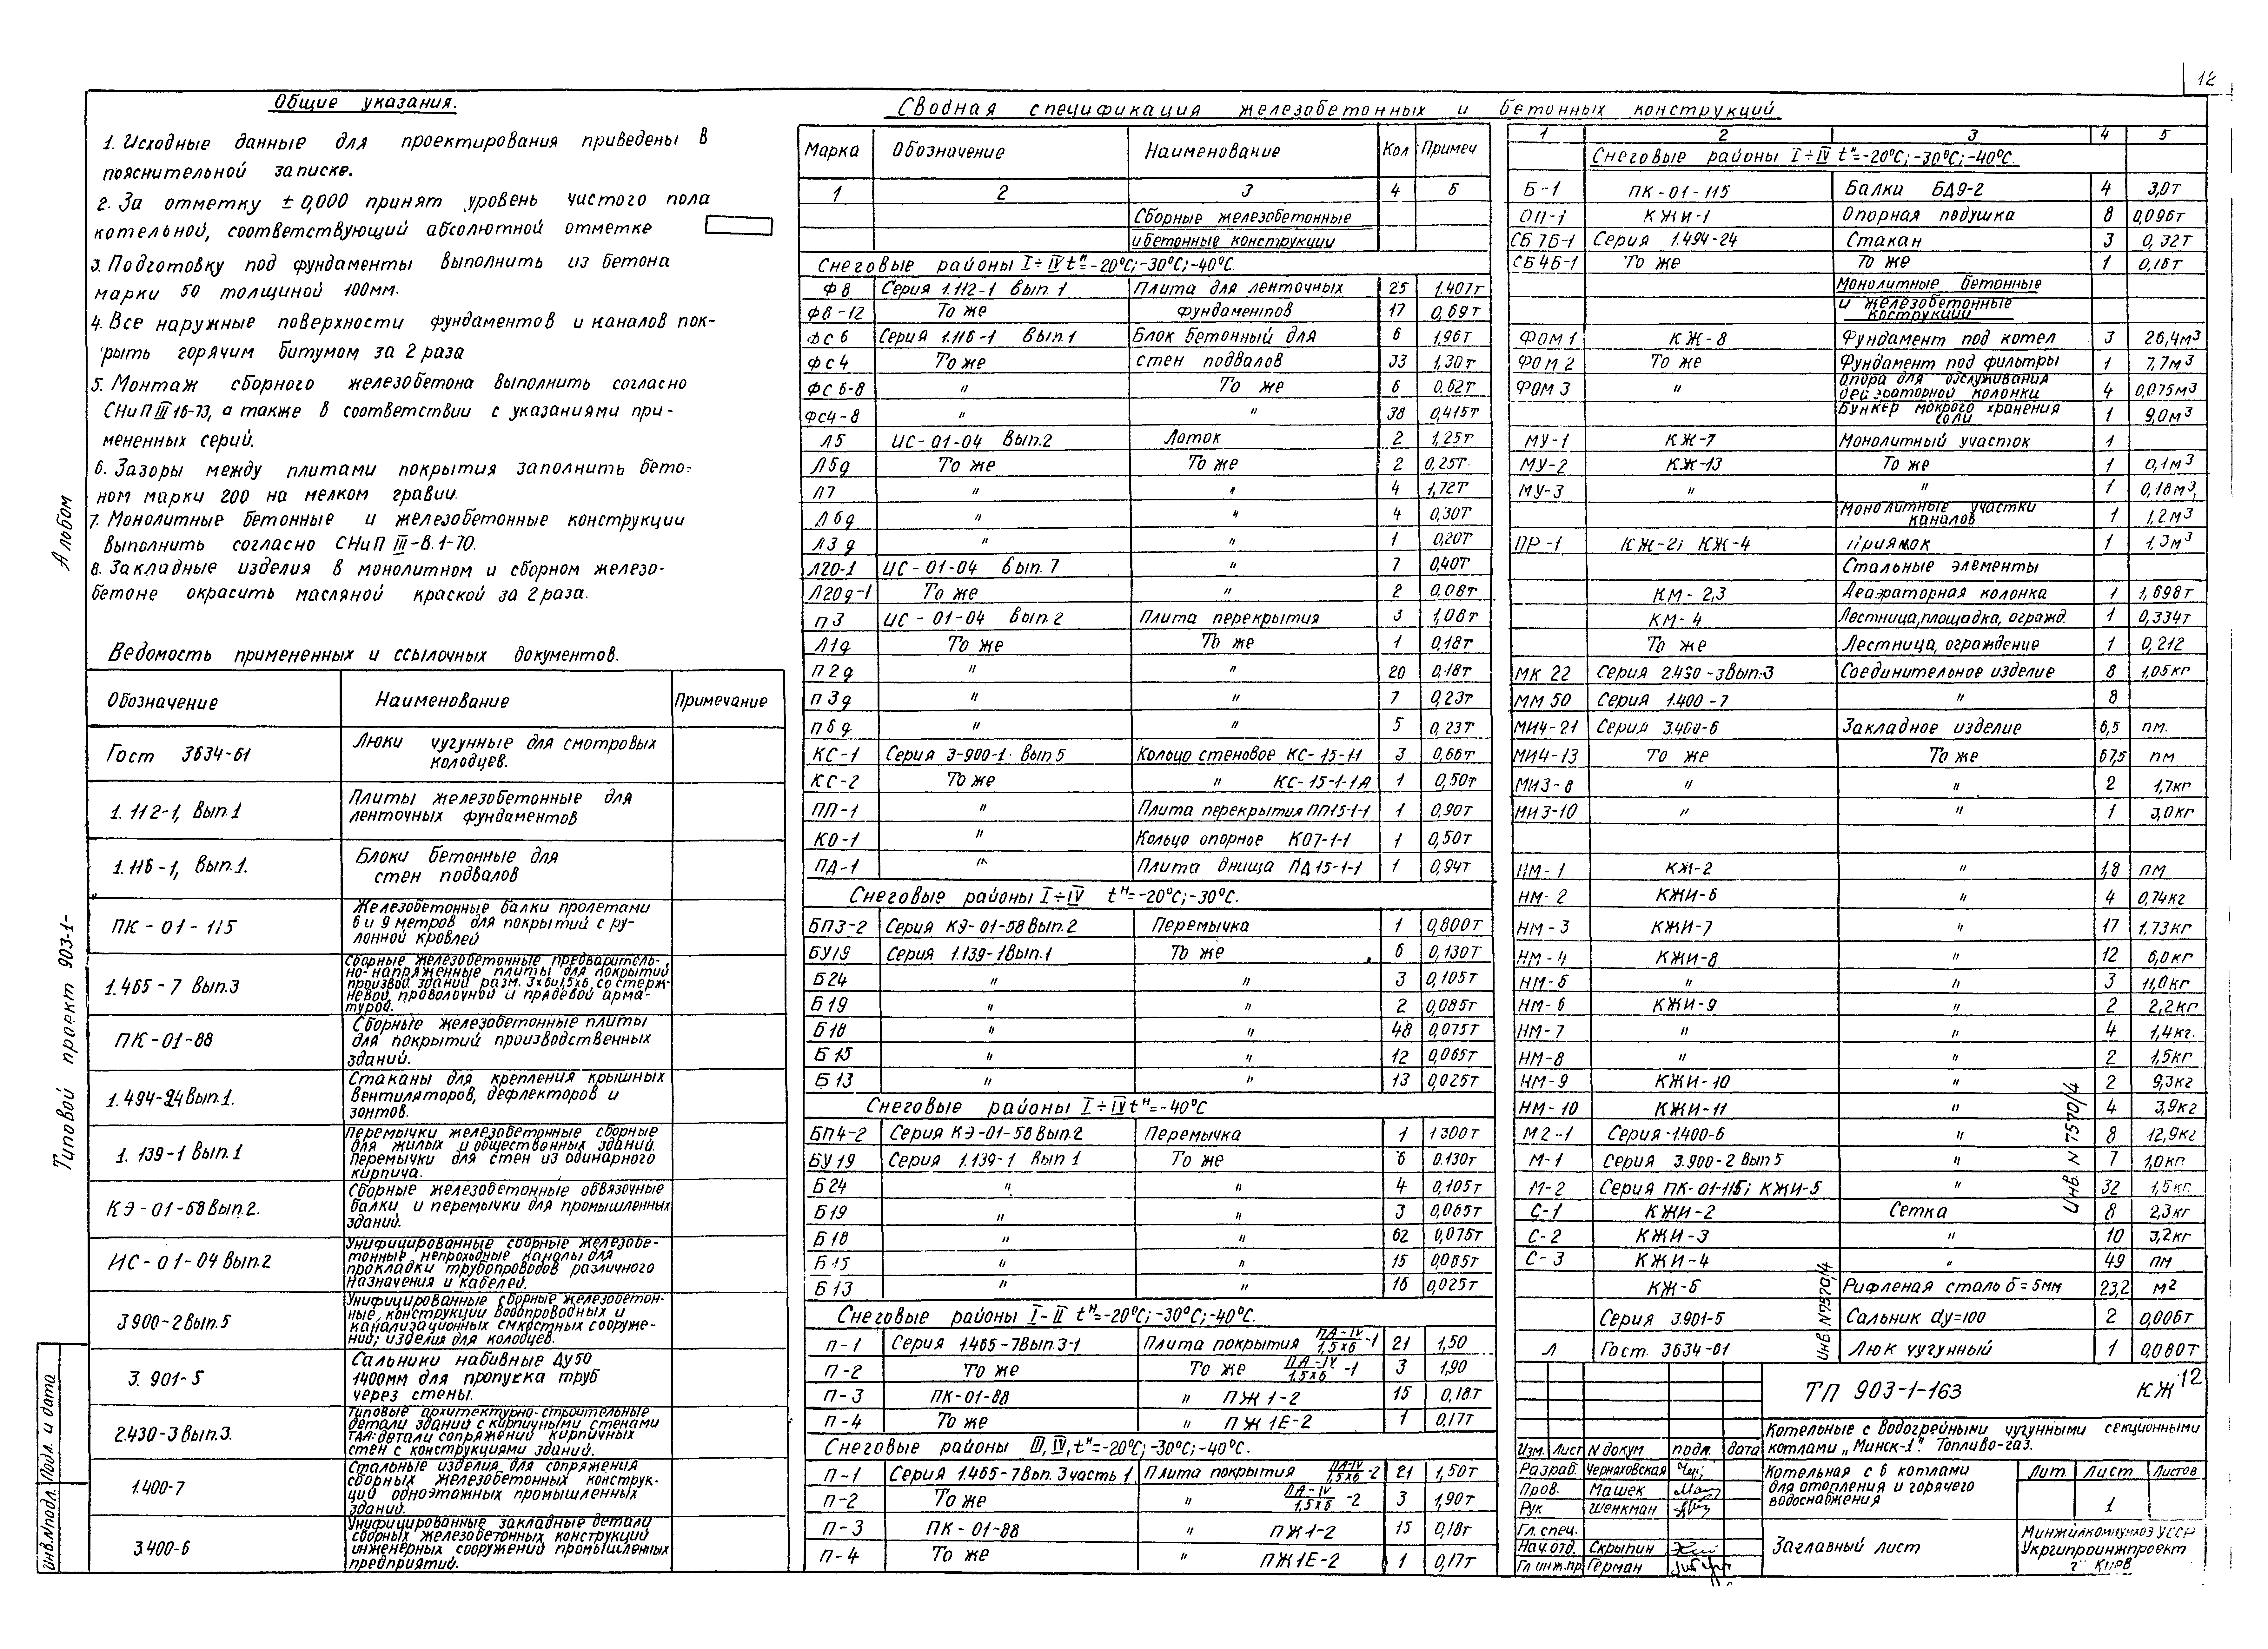 12
Общие указания.
1. Исходные данные для проектирования приведены в
пояснительной записке.
2. За отметку ± 0,000 принят уровень чистого пола
котельной, соответствующий абсолютной отметке
3. Подготовку под фундаменты выполнить из бетона
марки 50 толщиной 100мм.
4. Все наружные поверхности фундаментов и каналов пок-
рыть горячим битумом за 2 раза
5. Монтаж сборного железобетона выполнить согласно
СНиП III 16-73, а также в соответствии с указаниями при-
мененных серий.
6. Зазоры между плитами покрытия заполнить бето-
ном марки 200 на мелком гравии.
7. Монолитные бетонные и железобетонные конструкции
выполнить согласно СНиП III-В.1-70.
8. Закладные изделия в монолитном и сборном железо-
бетоне окрасить масляной краской за 2 раза.
Ведомость примененных и ссылочных документов.
Обозначение Наименование Примечание
Гост 3634-61 Люки чугунные для смотровых
колодцев.
1.112-1, Вып.1 Плиты железобетонные для
ленточных фундаментов
1.116-1, Вып.1. Блоки бетонные для
стен подвалов
ПК-01-115 Железобетонные балки пролетами
6 и 9 метров для покрытий с ру-
лонной кровлей
1.465-7 Вып.3 Сборные железобетонные предваритель-
но-напряженные плиты для покрытий
производ. зданий разм. 3х6и1,5х6, со стерж-
невой, проволочной и прядевой арма-
турой.
ПК-01-88 Сборные железобетонные плиты
для покрытий производственных
зданий.
1.494-24 Вып.1. Стаканы для крепления крышных
вентиляторов, дефлекторов и
зонтов.
1.139-1 Вып.1 Перемычки железобетонные сборные
для жилых и общественных зданий.
Перемычки для стен из одинарного
кирпича.
КЭ-01-58 Вып.2. Сборные железобетонные обвязочные
балки и перемычки для промышленных
зданий.
ИС-01-04 Вып.2 Унифицированные сборные железобе-
тонные непроходные каналы для
прокладки трубопроводов различного
назначения и кабелей.
3.900-2 Вып.5 Унифицированные сборные железобетон-
ные конструкции водопроводных и
канализационных емкостных сооруже-
ний; изделия для колодцев.
3.901-5 Сальники набивные Ду50
1400мм для пропуска труб
через стены.
2.430-3 Вып.3. Типовые архитектурно-строительные
детали зданий с кирпичными стенами
детали сопряжений кирпичных
стен с конструкциями зданий.
1.400-7 Стальные изделия для сопряжения
сборных железобетонных конструк-
ций одноэтажных промышленных
зданий.
3.400-6 Унифицированные закладные детали
сборных железобетонных конструкций
инженерных сооружений промышленных
предприятий.
Альбом
Типовой проект 903-1-
Подл. и дата
Инв.№подл.
Сводная спецификация железобетонных и бетонных конструкций
Марка Обозначение Наименование Кол Примеч
1 2 3 4 5
Сборные железобетонные
и бетонные конструкции
Снеговые районы I÷IV tн=-20°С;-30°С;-40°С.
Ф8 Серия 1.112-1 Вып.1 Плита для ленточных 25 1.407т
Ф8-12 То же фундаментов 17 0,69т
ФС6 Серия 1.116-1 Вып.1 Блок бетонный для 6 1,96т
ФС4 То же стен подвалов 33 1,30т
ФС6-8 " То же 6 0.62т
ФС4-8 " " 38 0,415т
Л5 ИС-01-04 Вып.2 Лоток 2 1,25т
Л5д То же То же 2 0,25т.
Л7 " " 4 1,72т
Л6д " " 4 0,30т
Л3д " " 1 0,20т
Л20-1 ИС-01-04 Вып.7 " 7 0,40т
Л20д-1 То же " 2 0,08т
П3 ИС-01-04 Вып.2 Плита перекрытия 3 1,08т
Л1д То же То же 1 0,18т
П2д " " 20 0,18т
П3д " " 7 0,23т
П6д " " 5 0,23т
КС-1 Серия 3-900-1 Вып 5 Кольцо стеновое КС-15-11 3 0,66т
КС-2 То же " КС-15-1-1А 1 0,50т
ПП-1 " Плита перекрытия ПП15-1-1 1 0,90т
КО-1 " Кольцо опорное КО7-1-1 1 0,50т
ПД-1 " Плита днища ПД15-1-1 1 0,94т
Снеговые районы I÷IV tн=-20°С;-30°С.
БП3-2 Серия КЭ-01-58 Вып.2 Перемычка 1 0,800т
БУ19 Серия 1.139-1Вып.1 То же 6 0,130т
Б24 " " 3 0,105т
Б19 " " 2 0,085т
Б18 " " 48 0,075т
Б15 " " 12 0,065т
Б13 " " 13 0,025т
Снеговые районы I÷IV tн=-40°С
БП4-2 Серия КЭ-01-58 Вып.2 Перемычка 1 1300т
БУ19 Серия 1.139-1 Вып 1 То же 6 0.130т
Б24 " " 4 0,105т
Б19 " " 3 0,085т
Б18 " " 62 0,075т
Б15 " " 15 0,065т
Б13 " " 16 0,025т
Снеговые районы I-II tн=-20°С;-30°С;-40°С.
П-1 Серия 1.465-7Вып.3-1 Плита покрытия ПА-IV/1,5х6-1 21 1,50
П-2 То же То же ПА-IV/1,5х6-1 3 1,90
П-3 ПК-01-88 " ПЖ1-2 15 0,18т
П-4 То же " ПЖ1Е-2 1 0,17т
Снеговые районы III,IV, tн=-20°С;-30°С;-40°С.
П-1 Серия 1.465-7Вып.3 часть 1 Плита покрытия ПА-IV/1,5х6-2 21 1,50т
П-2 То же " ПА-IV/1,5х6-2 3 1,90т
П-3 ПК-01-88 " ПЖ1-2 15 0,18т
П-4 То же " ПЖ1Е-2 1 0,17т
1 2 3 4 5
Снеговые районы I÷IV tн=-20°С;-30°С;-40°С.
Б-1 ПК-01-115 Балки БД9-2 4 3,0т
ОП-1 КЖИ-1 Опорная подушка 8 0,096т
СБ7Б-1 Серия 1.494-24 Стакан 3 0,32т
СБ4Б-1 То же То же 1 0,16т
Монолитные бетонные
и железобетонные
конструкции
ФОМ1 КЖ-8 Фундамент под котел 3 26,4м³
ФОМ2 То же Фундамент под фильтры 1 7,7м³
ФОМ3 " Опора для обслуживания
деаэраторной колонки 4 0,075м³
Бункер мокрого хранения
соли 1 9,0м³
МУ-1 КЖ-7 Монолитный участок 1
МУ-2 КЖ-13 То же 1 0,1м³
МУ-3 " " 1 0,18м³
Монолитные участки
каналов 1 1,2м³
ПР-1 КЖ-2; КЖ-4 Приямок 1 1,3м³
Стальные элементы
КМ-2,3 Деаэраторная колонка 1 1,698т
КМ-4 Лестница,площадка, огражд. 1 0,334т
То же Лестница, ограждение 1 0,212
МК 22 Серия 2.430-3Вып.3 Соединительное изделие 8 1,05кг
ММ 50 Серия 1.400-7 " 8
МИ4-21 Серия 3.400-6 Закладное изделие 6,5 пм.
МИ4-13 То же То же 67,5 пм
МИ3-8 " " 2 1,7кг
МИ3-10 " " 1 3,0кг
НМ-1 КЖ-2 " 1,8 пм
НМ-2 КЖИ-6 " 4 0,74кг
НМ-3 КЖИ-7 " 17 1,73кг
НМ-4 КЖИ-8 " 12 6,0кг
НМ-5 " " 3 11,0кг
НМ-6 КЖИ-9 " 2 2,2кг
НМ-7 " " 4 1,4кг.
НМ-8 " " 2 1,5кг
НМ-9 КЖИ-10 " 2 9,3кг
НМ-10 КЖИ-11 " 4 3,9кг
М2-1 Серия 1.400-6 " 8 12,9кг
М-1 Серия 3.900-2 Вып 5 " 7 1,0кг
М-2 Серия ПК-01-115; КЖИ-5 " 32 1,5кг
С-1 КЖИ-2 Сетка 8 2,3кг
С-2 КЖИ-3 " 10 3,2кг
С-3 КЖИ-4 " 49 пм
КЖ-5 Рифленая сталь б=5мм 23,2 м²
Серия 3.901-5 Сальник dу=100 2 0,006т
Л Гост. 3634-61 Люк чугунный 1 0,080т
Инв. N 7570/4
Инв. N7570/4
ТП 903-1-163 КЖ 12
Котельные с водогрейными чугунными секционными
котлами „Минск-1". Топливо-газ.
Изм. Лист N докум подп. дата
Разраб. Черняховская
Пров. Машек
Рук Шенкман
Гл. спец.
Нач.отд. Скрыпин
Гл инж.пр. Герман
Котельная с 6 котлами
для отопления и горячего
водоснабжения
Лит. Лист Листов
1
Заглавный лист
Минжилкоммунхоз УССР
Укргипроинжпроект
г Киев